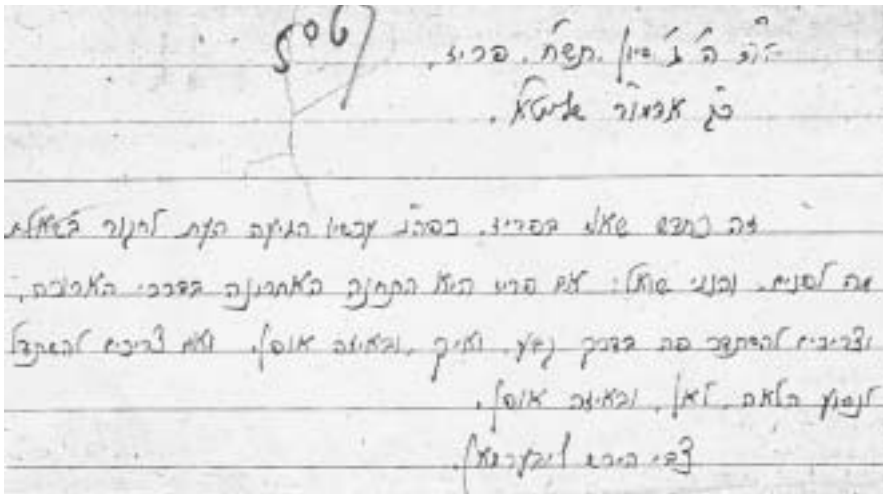 ה' ג' סיון, תש"ח, פריז.
כ"ק אדמו"ר שליט"א,
זה כחדש שאני בפריז. כפה"נ עכשיו הגיעה העת לחקור בשאלת
מה לפנים. והנני שואל: אם פריז היא התחנה האחרונה בדרכי הארוכה,
וצריכים להסתדר פה בדרך קבע, ואיך, ובאיזה אופן. ואם צריכים להשתדל
לנסוע הלאה, לאן, ובאיזה אופן.
צבי הירש